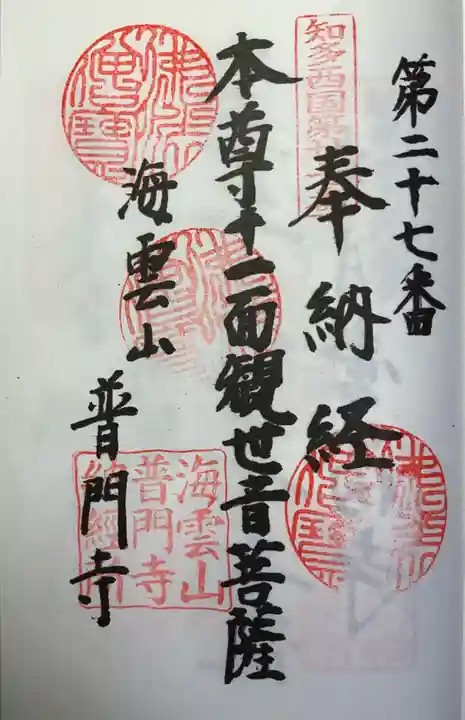 第二十七番
奉納経
知多西国第
本尊十一面観世音菩薩
海雲山
普門寺
佛法僧寶
海雲山
普門寺
納経所